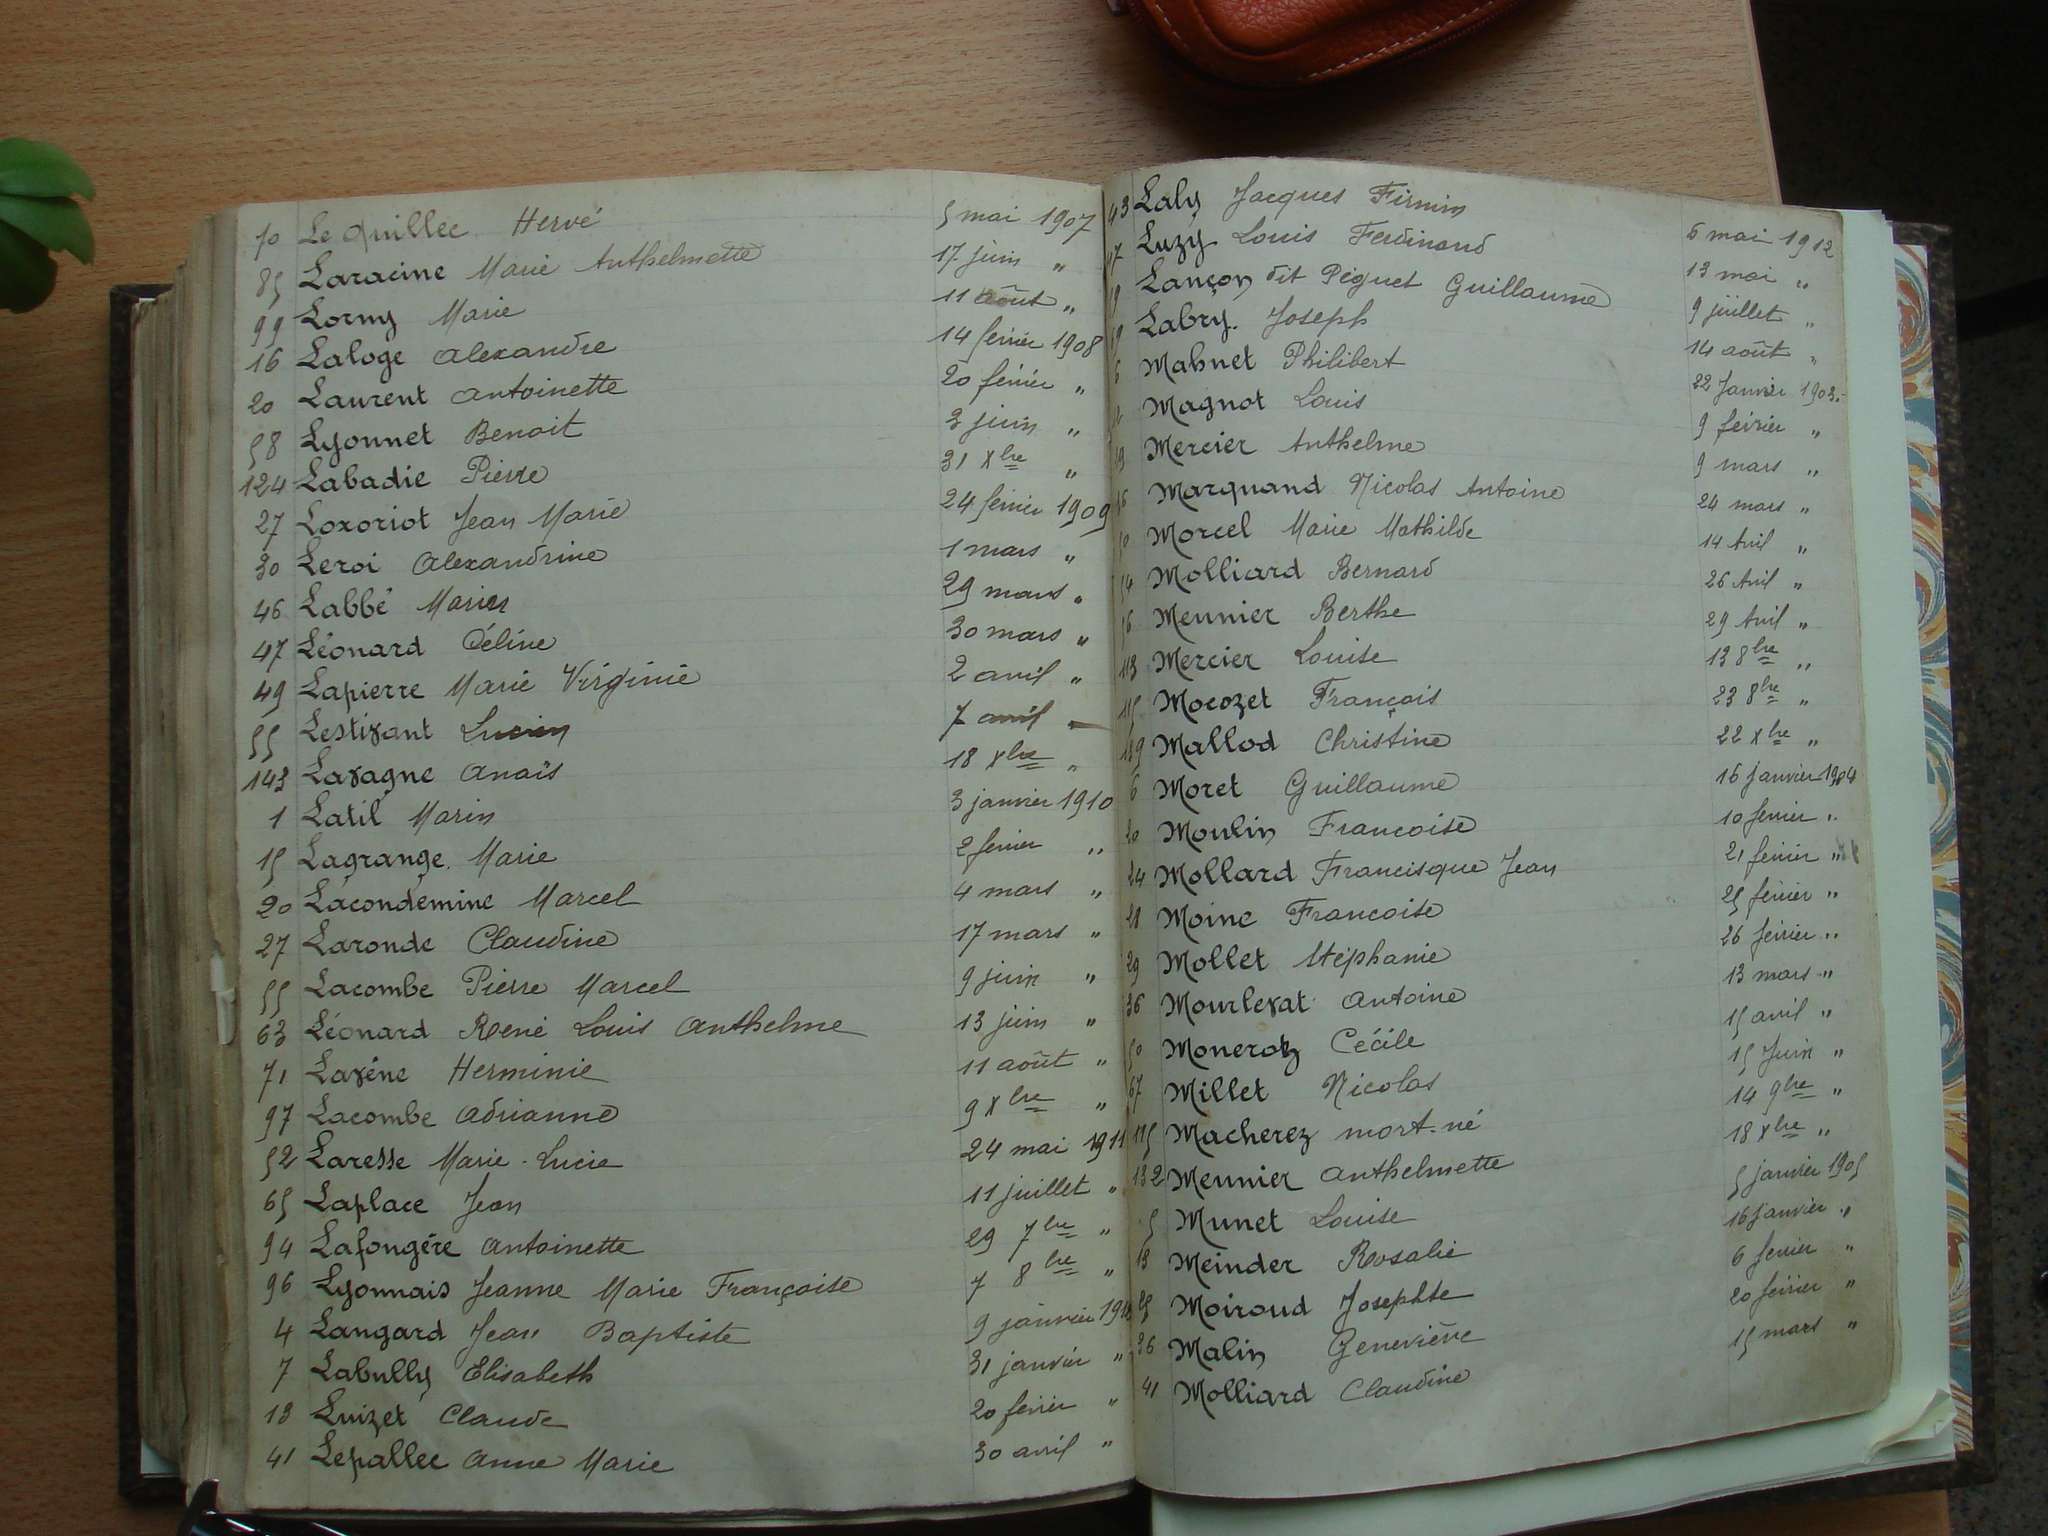 70 Le Quillec Hervé 5 mai 1907
85 Laracine Marie Anthelmette 17 juin "
99 Lorny Marie 11 août "
16 Laloge Alexandre 14 février 1908
20 Laurent Antoinette 20 février "
58 Lyonnet Benoit 3 juin "
124 Labadie Pierre 31 Xbre "
27 Loxoriot Jean Marie 24 février 1909
30 Leroi Alexandrine 1 mars "
46 Labbé 29 mars "
47 Léonard Céline 30 mars "
49 Lapierre Marie Virginie 2 avril "
55 Lestivant Lucien 7 avril "
143 Lavagne Anaïs 18 Xbre "
1 Latil Marin 3 janvier 1910
15 Lagrange Marie 2 février "
20 Lacondemine Marcel 4 mars "
27 Laronde Claudine 17 mars "
55 Lacombe Pierre Marcel 9 juin "
63 Léonard René Louis Anthelme 13 juin "
71 Lavéne Herminie 11 août "
97 Lacombe Adrianne 9 Xbre "
52 Laresse Marie-Lucie 24 mai 1911
65 Laplace Jean 11 juillet "
94 Lafongère Antoinette 29 7bre "
96 Lyonnais Jeanne Marie Françoise 7 8bre "
4 Langard Jean Baptiste 9 janvier
7 Labully Elisabeth 31 janvier "
13 Luizet Claude 20 février "
41 Lepallec Anne Marie 30 avril "
43 Laly Jacques Firmin 6 mai 1912
Luzy Louis Ferdinand 13 mai "
Lançon dit Péguet Guillaume 9 juillet "
Labry Joseph 14 août "
6 Mahnet Philibert 22 Janvier 1903.
Magnot Louis 9 février "
Mercier Anthelme 9 mars "
Marquand Nicolas Antoine 24 mars "
Morcel Marie Mathilde 14 Avril "
Molliard Bernard 26 Avril "
Meunier Berthe 29 Avril "
113 Mercier Louise 13 8bre "
115 Mocozet François 23 8bre "
139 Mallod Christine 22 Xbre "
6 Moret Guillaume 16 janvier 1904
20 Moulin Francoise 10 février "
24 Mollard Francisque Jean 21 février "
28 Moine Francoise 25 février "
29 Mollet Stéphanie 26 février "
36 Mourlevat Antoine 13 mars "
50 Cécile 15 avril "
67 Millet Nicolas 15 Juin "
115 Macherez mort-né 14 9bre "
132 Meunier Anthelmette 18 Xbre "
5 Munet Louise 5 janvier 1905
13 Meinder Rosalie 16 janvier "
25 Moiroud Josephte 6 février "
36 Malin Geneviève 20 février "
41 Molliard Claudine 15 mars "